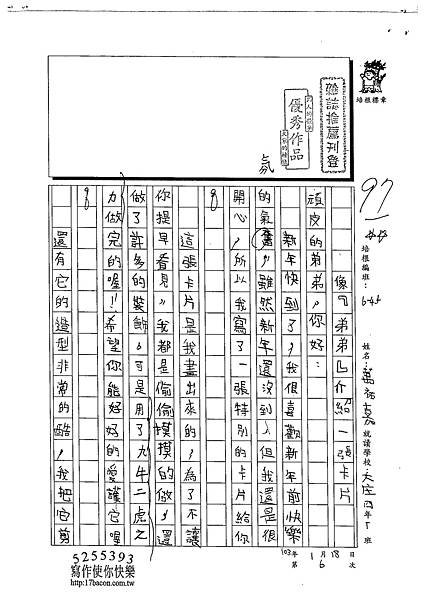 雜誌推薦刊登
優秀作品
培根標章
97
培根編班：
姓名：
就讀學校
天空四年5班
103年1月18日
第6次
氛
像「弟弟」介紹一張卡片
頑皮的弟弟，你好：
新年快到了，我很喜歡新年前快樂
的氣，雖然新年還沒到，但我還是很
開心，所以我寫了一張特別的卡片給你
。
這張卡片是我畫出來的，為了不讓
你提早看見，我都是偷偷摸摸的做，還
做了許多的裝飾，可是用了九牛二虎之
力做完的喔！希望你能好好的愛護它喔
。
還有它的造型非常的酷，我把它剪
5255393
寫作使你快樂
http://17bacon.com.tw